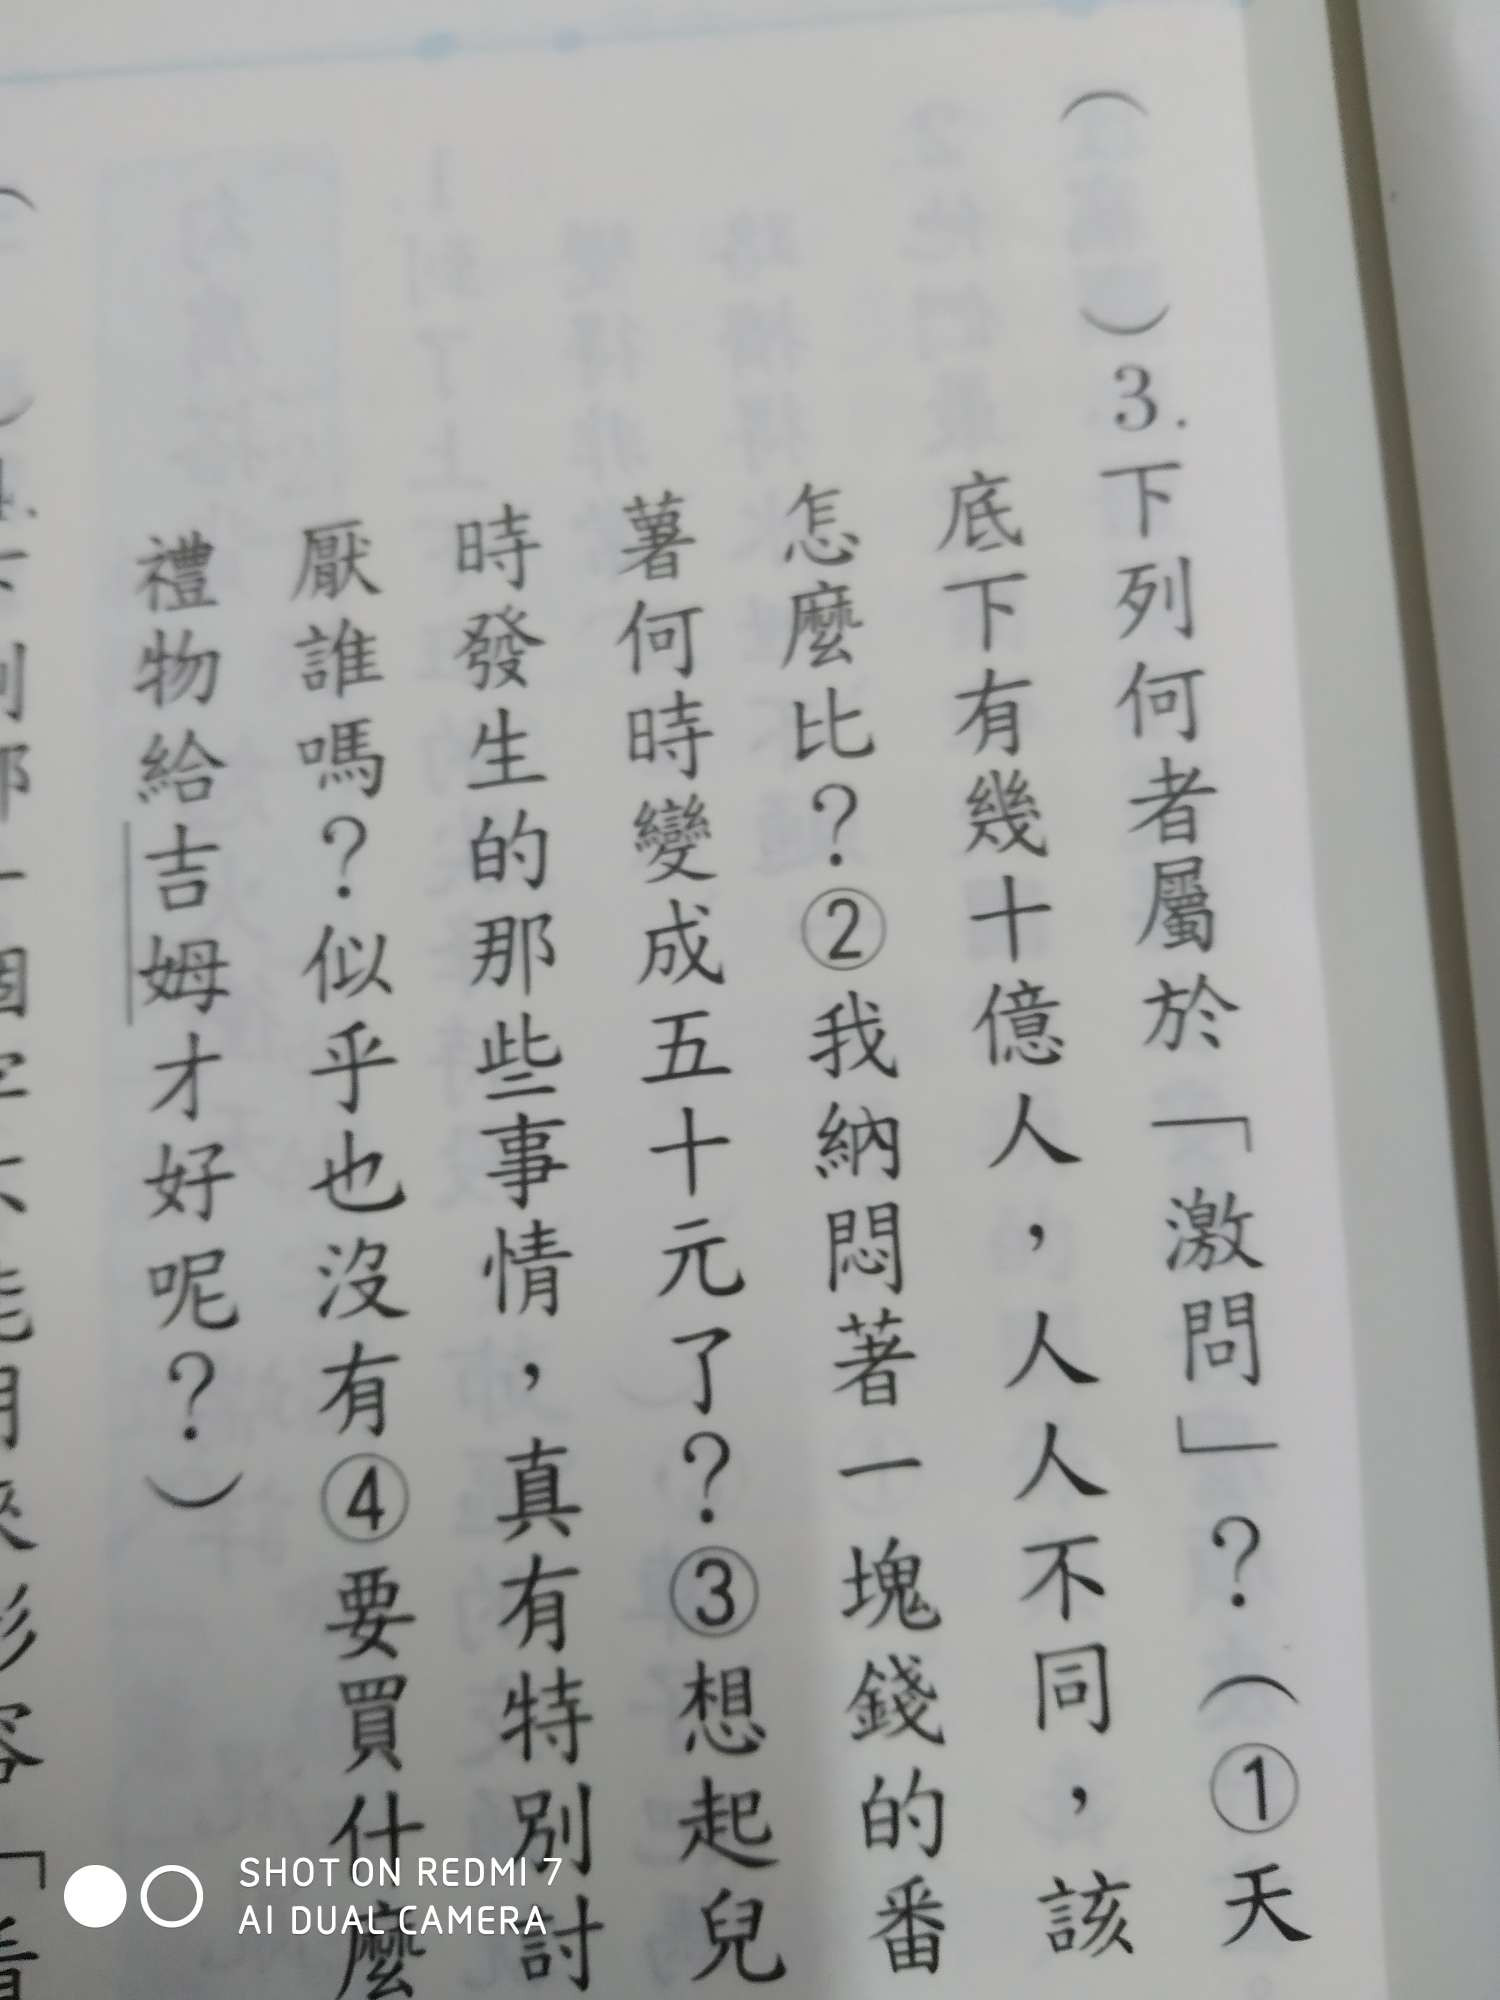 （　）3.下列何者屬於「激問」？（①天
底下有幾十億人，人人不同，該
怎麼比？②我納悶著一塊錢的番
薯何時變成五十元了？③想起兒
時發生的那些事情，真有特別討
厭誰嗎？似乎也沒有④要買什麼
禮物給吉姆才好呢？）
SHOT ON REDMI 7
AI DUAL CAMERA